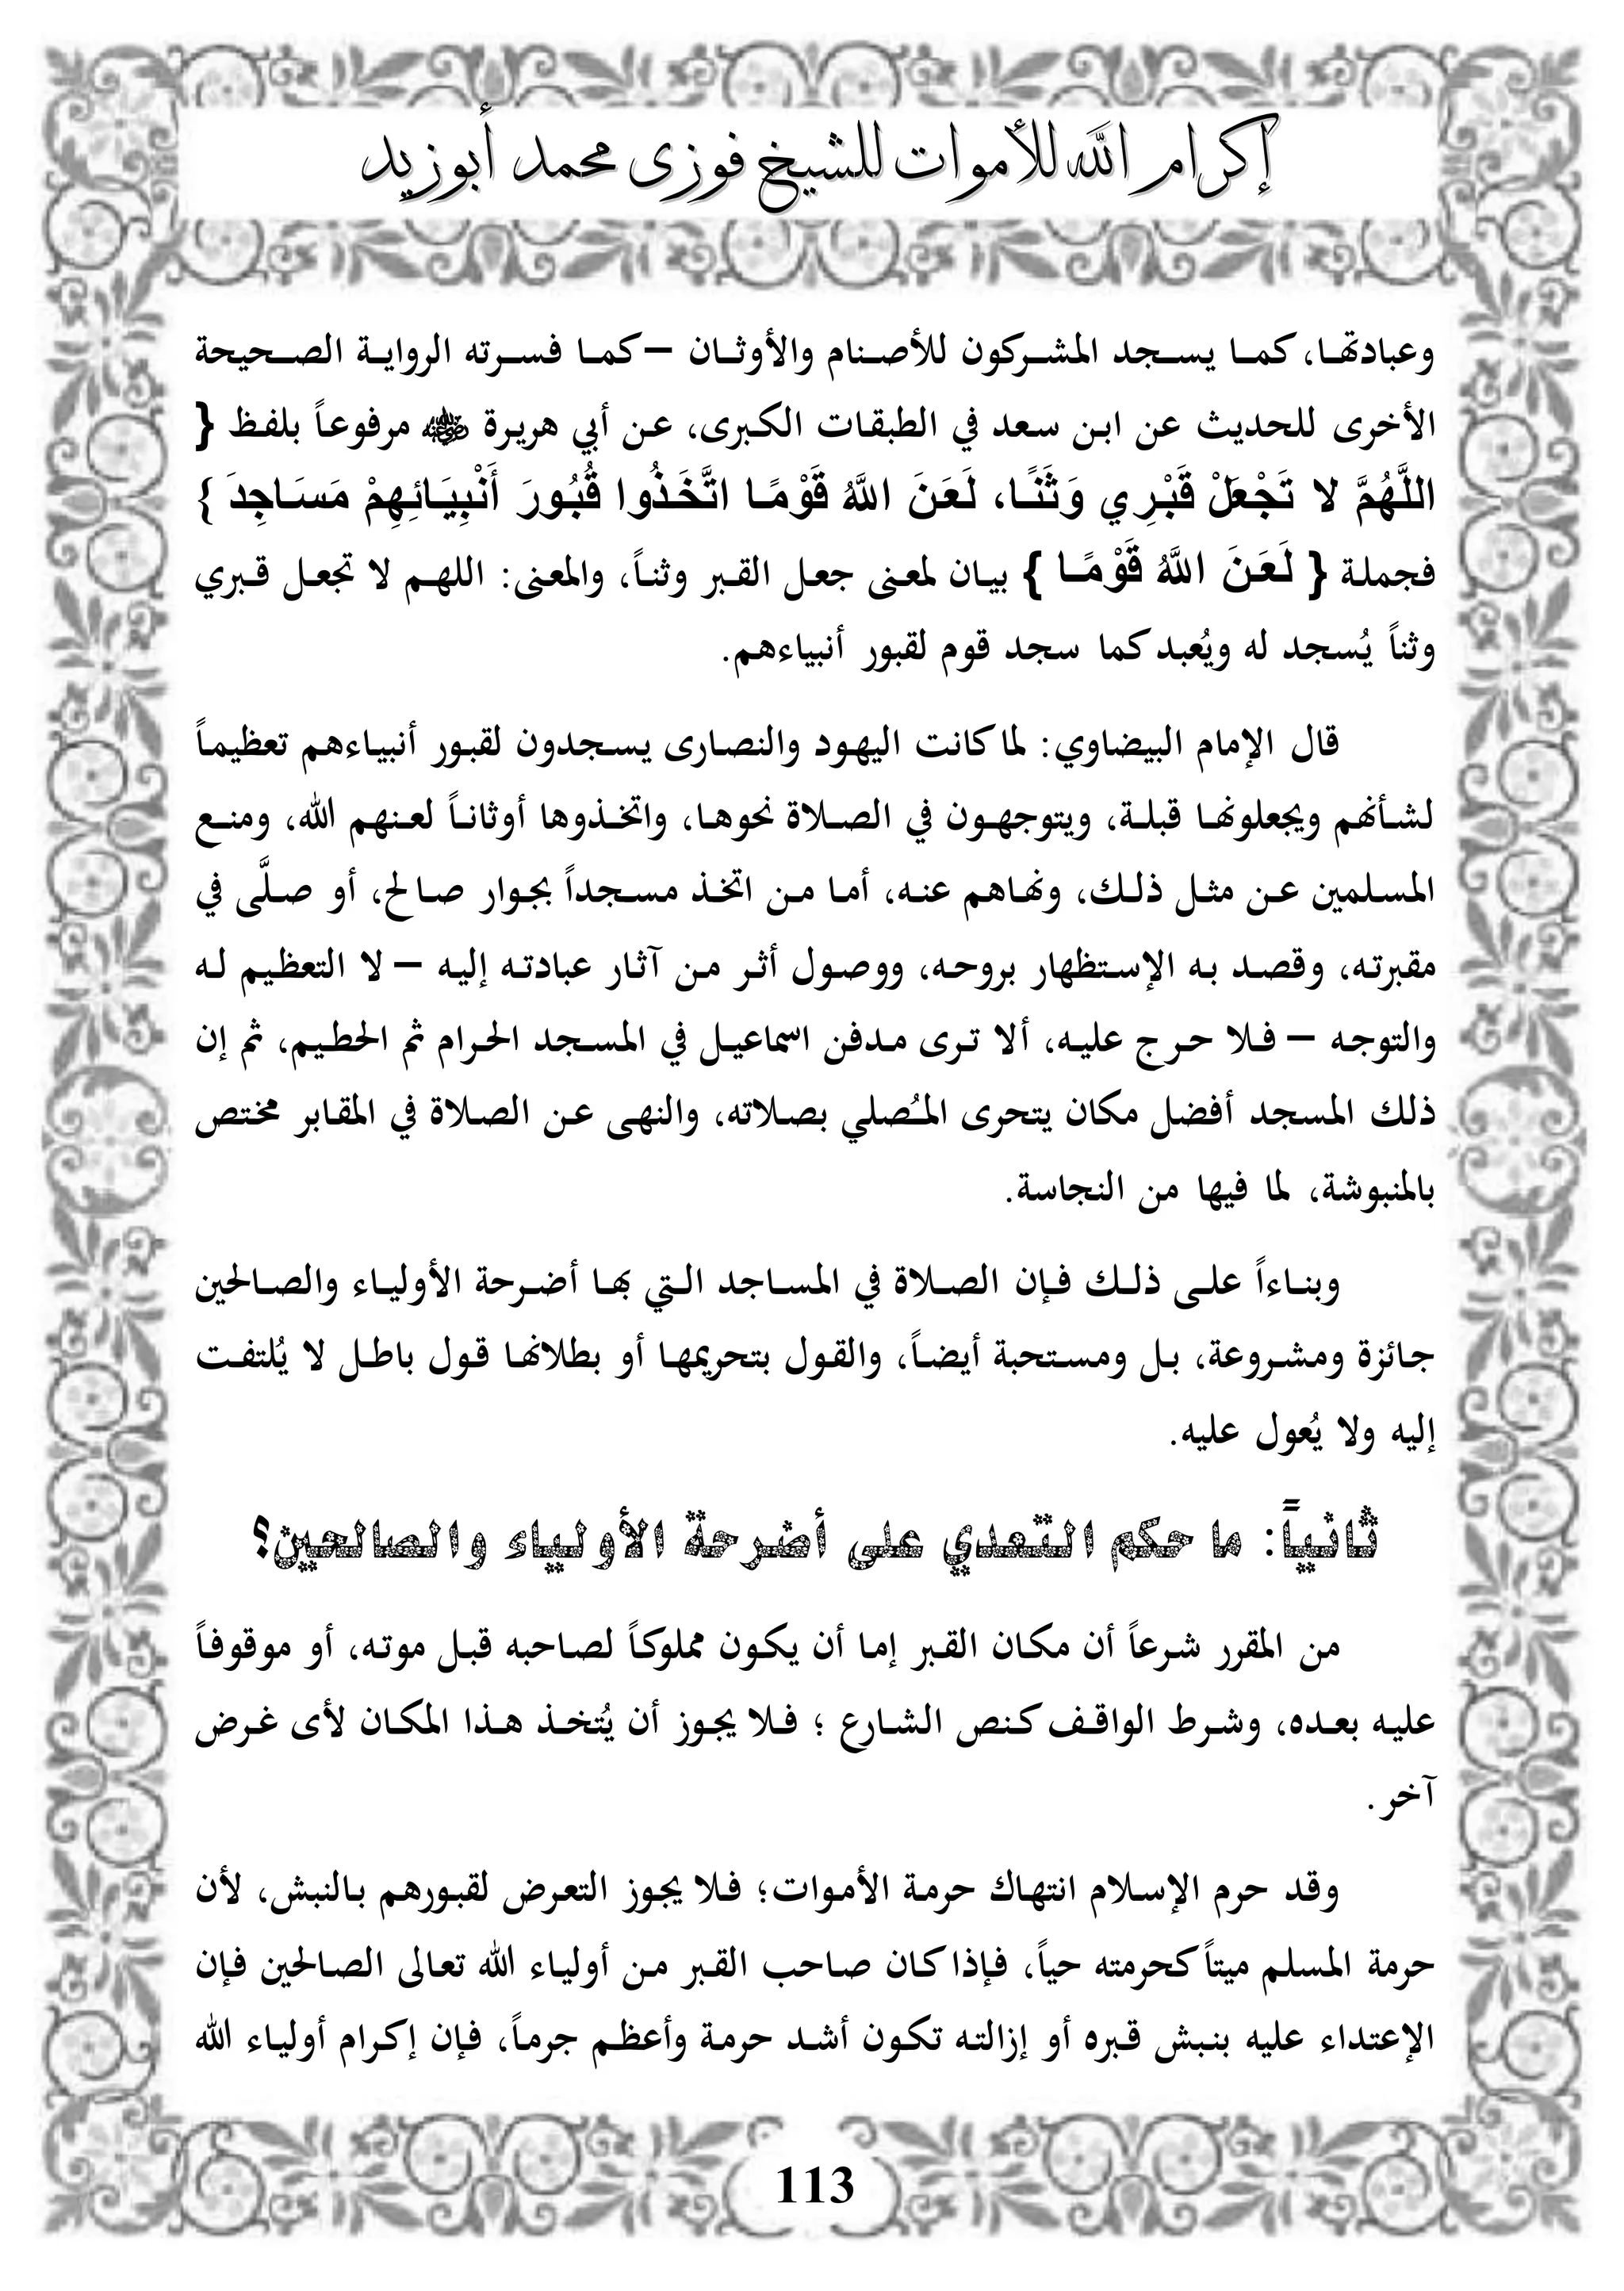 إكرام الله للأموات للشيخ فوزى محمد أبوزيد
وعبادتها، كما يسجد المشركون للأصنام والأوثان – كما فسرته الرواية الصحيحة
الأخرى للحديث عن ابن سعد في الطبقات الكبرى، عن أبي هريرة ﷺ مرفوعاً بلفظ {
اللَّهُمَّ لا تَجْعَلْ قَبْرِي وَثَنًا، لَعَنَ اللَّهُ قَوْمًا اتَّخَذُوا قُبُورَ أَنْبِيَائِهِمْ مَسَاجِدَ }
فجملة { لَعَنَ اللَّهُ قَوْمًا } بيان لمعنى جعل القبر وثناً، والمعنى: اللهم لا تجعل قبري
وثناً يُسجد له ويُعبد كما سجد قوم لقبور أنبياءهم.
قال الإمام البيضاوي: لما كانت اليهود والنصارى يسجدون لقبور أنبياءهم تعظيماً
لشأنهم ويجعلونها قبلة، ويتوجهون في الصلاة نحوها، واتخذوها أوثاناً لعنهم الله، ومنع
المسلمين عن مثل ذلك، ونهاهم عنه، أما من اتخذ مسجداً بجوار صالح، أو صلَّى في
مقبرته، وقصد به الإستظهار بروحه، ووصول أثر من آثار عبادته إليه – لا التعظيم له
والتوجه – فلا حرج عليه، ألا ترى مدفن اسماعيل في المسجد الحرام ثم الحطيم، ثم إن
ذلك المسجد أفضل مكان يتحرى المُصلي بصلاته، والنهى عن الصلاة في المقابر مختص
بالمنبوشة، لما فيها من النجاسة.
وبناءاً على ذلك فإن الصلاة في المساجد التي بها أضرحة الأولياء والصالحين
جائزة ومشروعة، بل ومستحبة أيضاً، والقول بتحريمها أو بطلانها قول باطل لا يُلتفت
إليه ولا يُعول عليه.
ثانياً: ما حكم التعدي على أضرحة الأولياء والصالحين؟
من المقرر شرعاً أن مكان القبر إما أن يكون مملوكاً لصاحبه قبل موته، أو موقوفاً
عليه بعده، وشرط الواقف كنص الشارع ؛ فلا يجوز أن يُتخذ هذا المكان لأى غرض
آخر.
وقد حرم الإسلام انتهاك حرمة الأموات؛ فلا يجوز التعرض لقبورهم بالنبش، لأن
حرمة المسلم ميتاً كحرمته حياً، فإذا كان صاحب القبر من أولياء الله تعالى الصالحين فإن
الإعتداء عليه بنبش قبره أو إزالته تكون أشد حرمة وأعظم جرماً، فإن إكرام أولياء الله
113